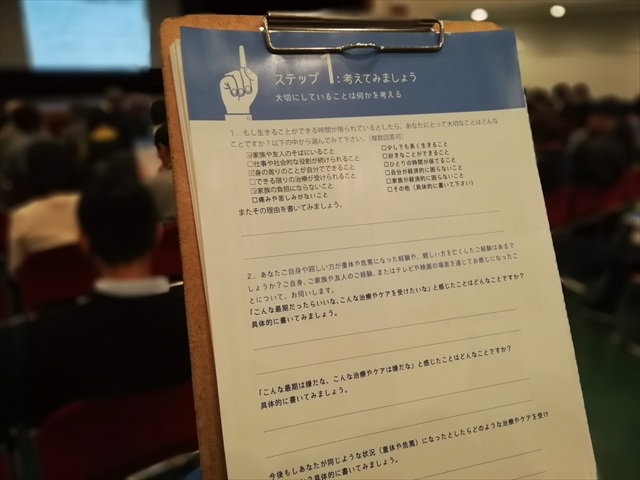 ステップ1：考えてみましょう
大切にしていることは何かを考える
1．もし生きることができる時間が限られているとしたら、あなたにとって大切なことはどんな
ことですか？以下の中から選んでみて下さい。（複数回答可）
☑家族や友人のそばにいること
□仕事や社会的な役割が続けられること
☑身の周りのことが自分でできること
□できる限りの治療が受けられること
☑家族の負担にならないこと
□痛みや苦しみがないこと
□少しでも長く生きること
□好きなことができること
□ひとりの時間が保てること
□自分が経済的に困らないこと
□家族が経済的に困らないこと
□その他（具体的に書いて下さい）
またその理由を書いてみましょう。
2．あなたご自身や親しい方が重体や危篤になった経験や、親しい方を亡くしたご経験はあるで
しょうか？ご自身、ご家族や友人のご経験、またはテレビや映画の場面を通じてお感じになったこ
とについて、お伺いします。
「こんな最期だったらいいな、こんな治療やケアを受けたいな」と感じたことはどんなことですか？
具体的に書いてみましょう。
「こんな最期は嫌だな、こんな治療やケアは嫌だな」と感じたことはどんなことですか？
具体的に書いてみましょう。
今後もしあなたが同じような状況（重体や危篤）になったとしたらどのような治療やケアを受け
か？具体的に書いてみましょう。